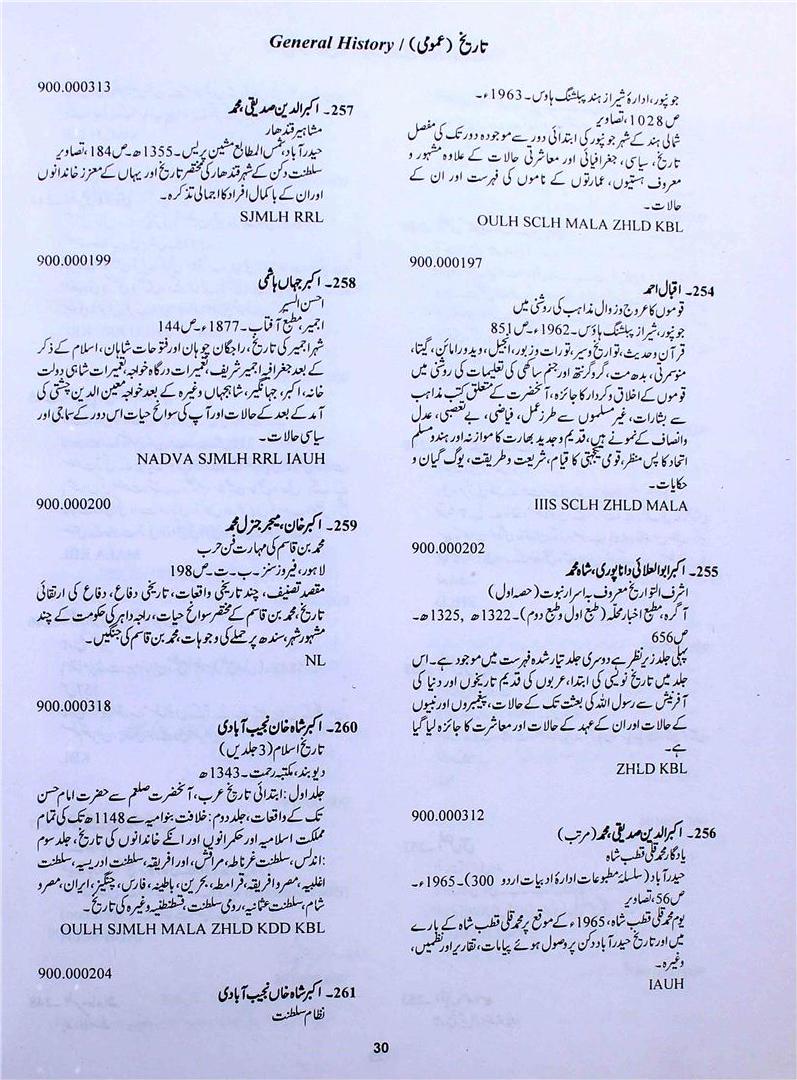 General History / تاریخ (عمومی)
جونپور، ادارۂ شیراز ہند پبلشنگ ہاوس۔ 1963ء۔
ص 1028، تصاویر
شمالی ہند کے شہر جونپور کی ابتدائی دور سے موجودہ دور تک کی مفصل
تاریخ، سیاسی، جغرافیائی اور معاشرتی حالات کے علاوہ مشہور و
معروف ہستیوں، عمارتوں کے ناموں کی فہرست اور ان کے
حالات۔
OULH SCLH MALA ZHLD KBL
900.000197
254۔ اقبال احمد
قوموں کا عروج و زوال مذاہب کی روشنی میں
جونپور، شیراز پبلشنگ ہاؤس۔ 1962ء۔ ص 851
قرآن و حدیث، تواریخ و سیر، تورات و زبور، انجیل، وید و رامائن، گیتا،
منوسمرتی، بدھ مت، گروگرنتھ اور جنم ساکھی کی تعلیمات کی روشنی میں
قوموں کے اخلاق و کردار کا جائزہ، آنحضرت کے متعلق کتب مذاہب
سے بشارات، غیر مسلموں سے طرز عمل، فیاضی، بے تعصبی، عدل
وانصاف کے نمونے ہیں، قدیم و جدید بھارت کا موازنہ اور ہندو مسلم
اتحاد کا پس منظر، قومی یکجہتی کا قیام، شریعت و طریقت، یوگ گیان و
حکایات۔
IIIS SCLH ZHLD MALA
900.000202
255۔ اکبر ابوالعلائی داناپوری، شاہ محمد
اشرف التواریخ معروف بہ اسرار نبوت (حصہ اول)
آگرہ، مطبع اخبار محلہ، (طبع اول و طبع دوم)۔ 1322ھ، 1325ھ۔
ص 656
پہلی جلد زیر نظر ہے دوسری جلد تیار شدہ فہرست میں موجود ہے۔ اس
جلد میں تاریخ نویسی کی ابتدا، عربوں کی قدیم تاریخوں اور دنیا کی
آفرینش سے رسول اللہ کی بعثت تک کے حالات، پیغمبروں اور نبیوں
کے حالات اور ان کے عہد کے حالات اور معاشرت کا جائزہ لیا گیا
ہے۔
ZHLD KBL
900.000312
256۔ اکبر الدین صدیقی، محمد (مرتب)
یادگار محمد قلی قطب شاہ
حیدرآباد (سلسلۂ مطبوعات ادارۂ ادبیات اردو 300)۔ 1965ء۔
ص 56، تصاویر
یوم محمد قلی قطب شاہ، 1965ء کے موقع پر محمد قلی قطب شاہ کے بارے
میں اور تاریخ حیدرآباد دکن پر وصول ہوئے پیامات، تقاریر اور نظمیں،
وغیرہ۔
IAUH
900.000313
257۔ اکبر الدین صدیقی، محمد
مشاہیر قندھار
حیدرآباد، شمس المطابع مشین پریس۔ 1355ھ۔ ص 184، تصاویر
سلطنت دکن کے شہر قندھار کی مختصر تاریخ اور یہاں کے معزز خاندانوں
اور ان کے باکمال افراد کا اجمالی تذکرہ۔
SJMLH RRL
900.000199
258۔ اکبر جہاں ہاشمی
احسن السیر
اجمیر، مطبع آفتاب۔ 1877ء۔ ص 144
شہر اجمیر کی تاریخ، راجگان چوہان اور فتوحات شاہان، اسلام کے ذکر
کے بعد جغرافیہ اجمیر شریف، تعمیرات درگاہ خواجہ، تعمیرات شاہی دولت
خانہ، اکبر، جہانگیر، شاہجہاں وغیرہ کے بعد خواجہ معین الدین چشتی کی
آمد کے بعد کے حالات اور آپ کی سوانح حیات اس دور کے سماجی اور
سیاسی حالات۔
NADVA SJMLH RRL IAUH
900.000200
259۔ اکبر خان، میجر جنرل محمد
محمد بن قاسم کی مہارت فن حرب
لاہور، فیروز سنز۔ ب۔ ت۔ ص 198
مقصد تصنیف، چند تاریخی واقعات، تاریخی دفاع، دفاع کی ارتقائی
تاریخ، محمد بن قاسم کے مختصر سوانح حیات، راجہ داہر کی حکومت کے چند
مشہور شہر، سندھ پر حملے کی وجوہات، محمد بن قاسم کی جنگیں۔
NL
900.000318
260۔ اکبر شاہ خان نجیب آبادی
تاریخ اسلام (3 جلدیں)
دیوبند، مکتبہ رحمت۔ 1343ھ
جلد اول: ابتدائی تاریخ عرب، آنحضرت صلعم سے حضرت امام حسن
تک کے واقعات، جلد دوم: خلافت بنوامیہ سے 1148ھ تک کی تمام
مملکت اسلامیہ اور حکمرانوں اور انکے خاندانوں کی تاریخ، جلد سوم
: اندلس، سلطنت غرناطہ، مراقش، اور افریقہ، سلطنت ادریسیہ، سلطنت
اغلبیہ، مصر و افریقہ، قرامطہ، بحرین، باطینہ، فارس، چنگیز، ایران، مصر و
شام، سلطنت عثمانیہ، رومی سلطنت، قسطنطنیہ وغیرہ کی تاریخ۔
OULH SJMLH MALA ZHLD KDD KBL
900.000204
261۔ اکبر شاہ خاں نجیب آبادی
نظام سلطنت
30